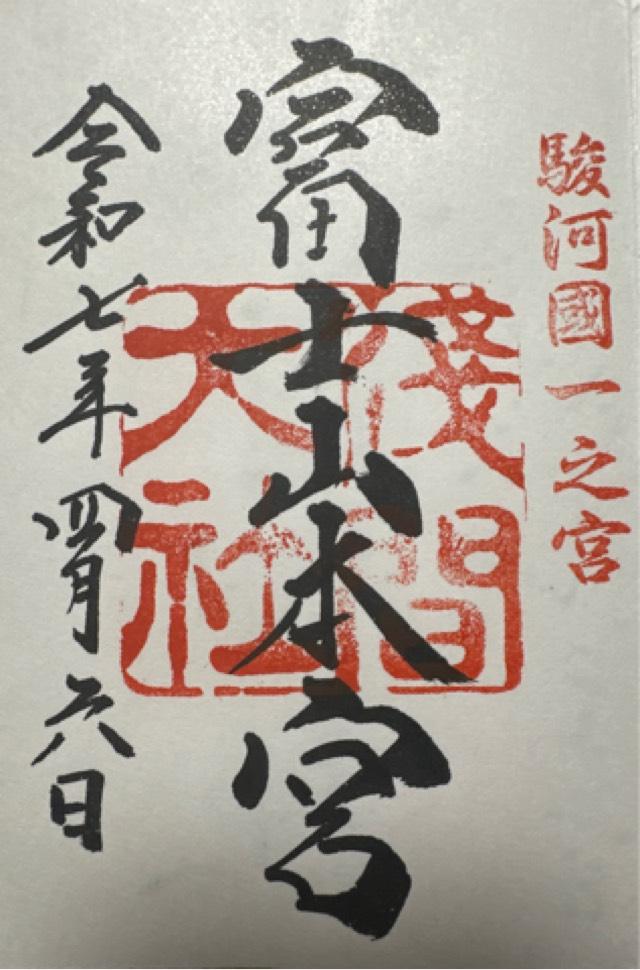 駿河國一之宮
富士山本宮
淺間
大社
令和七年四月六日